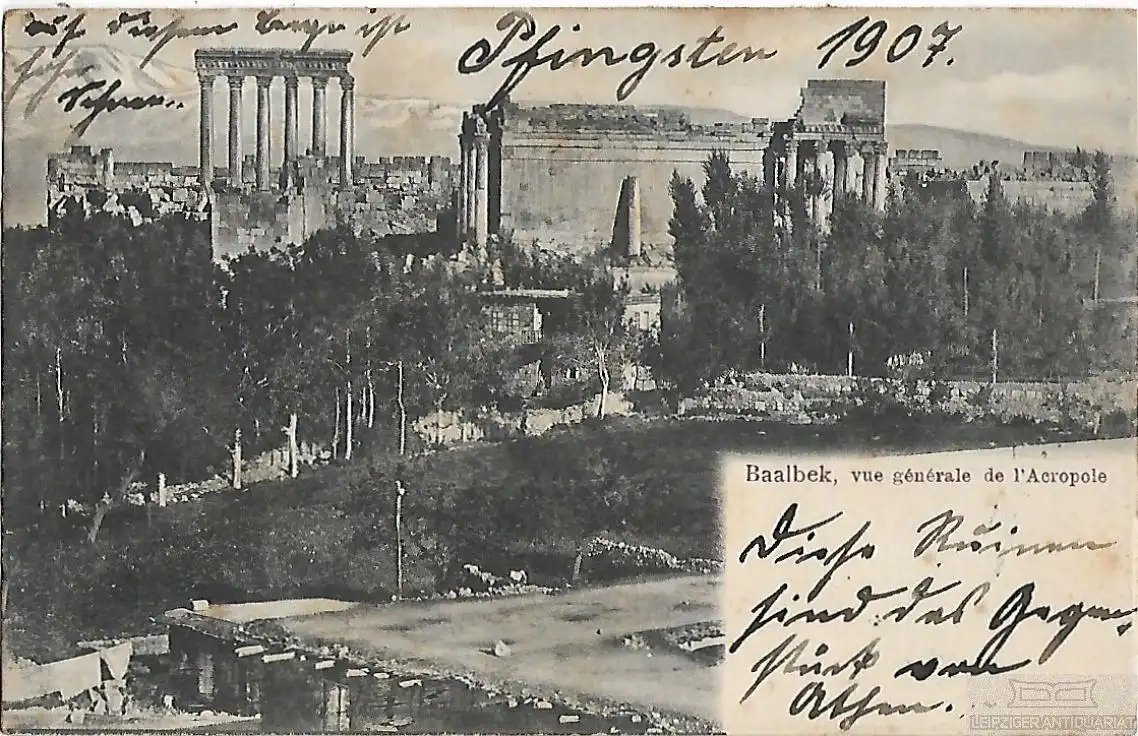 auf diesem Berge ist
Schnee..
Pfingsten 1907.
Baalbek, vue générale de l'Acropole
Diese Ruinen
sind das Gegen-
stück von
Athen.
LEIPZIGER ANTIQUARIAT